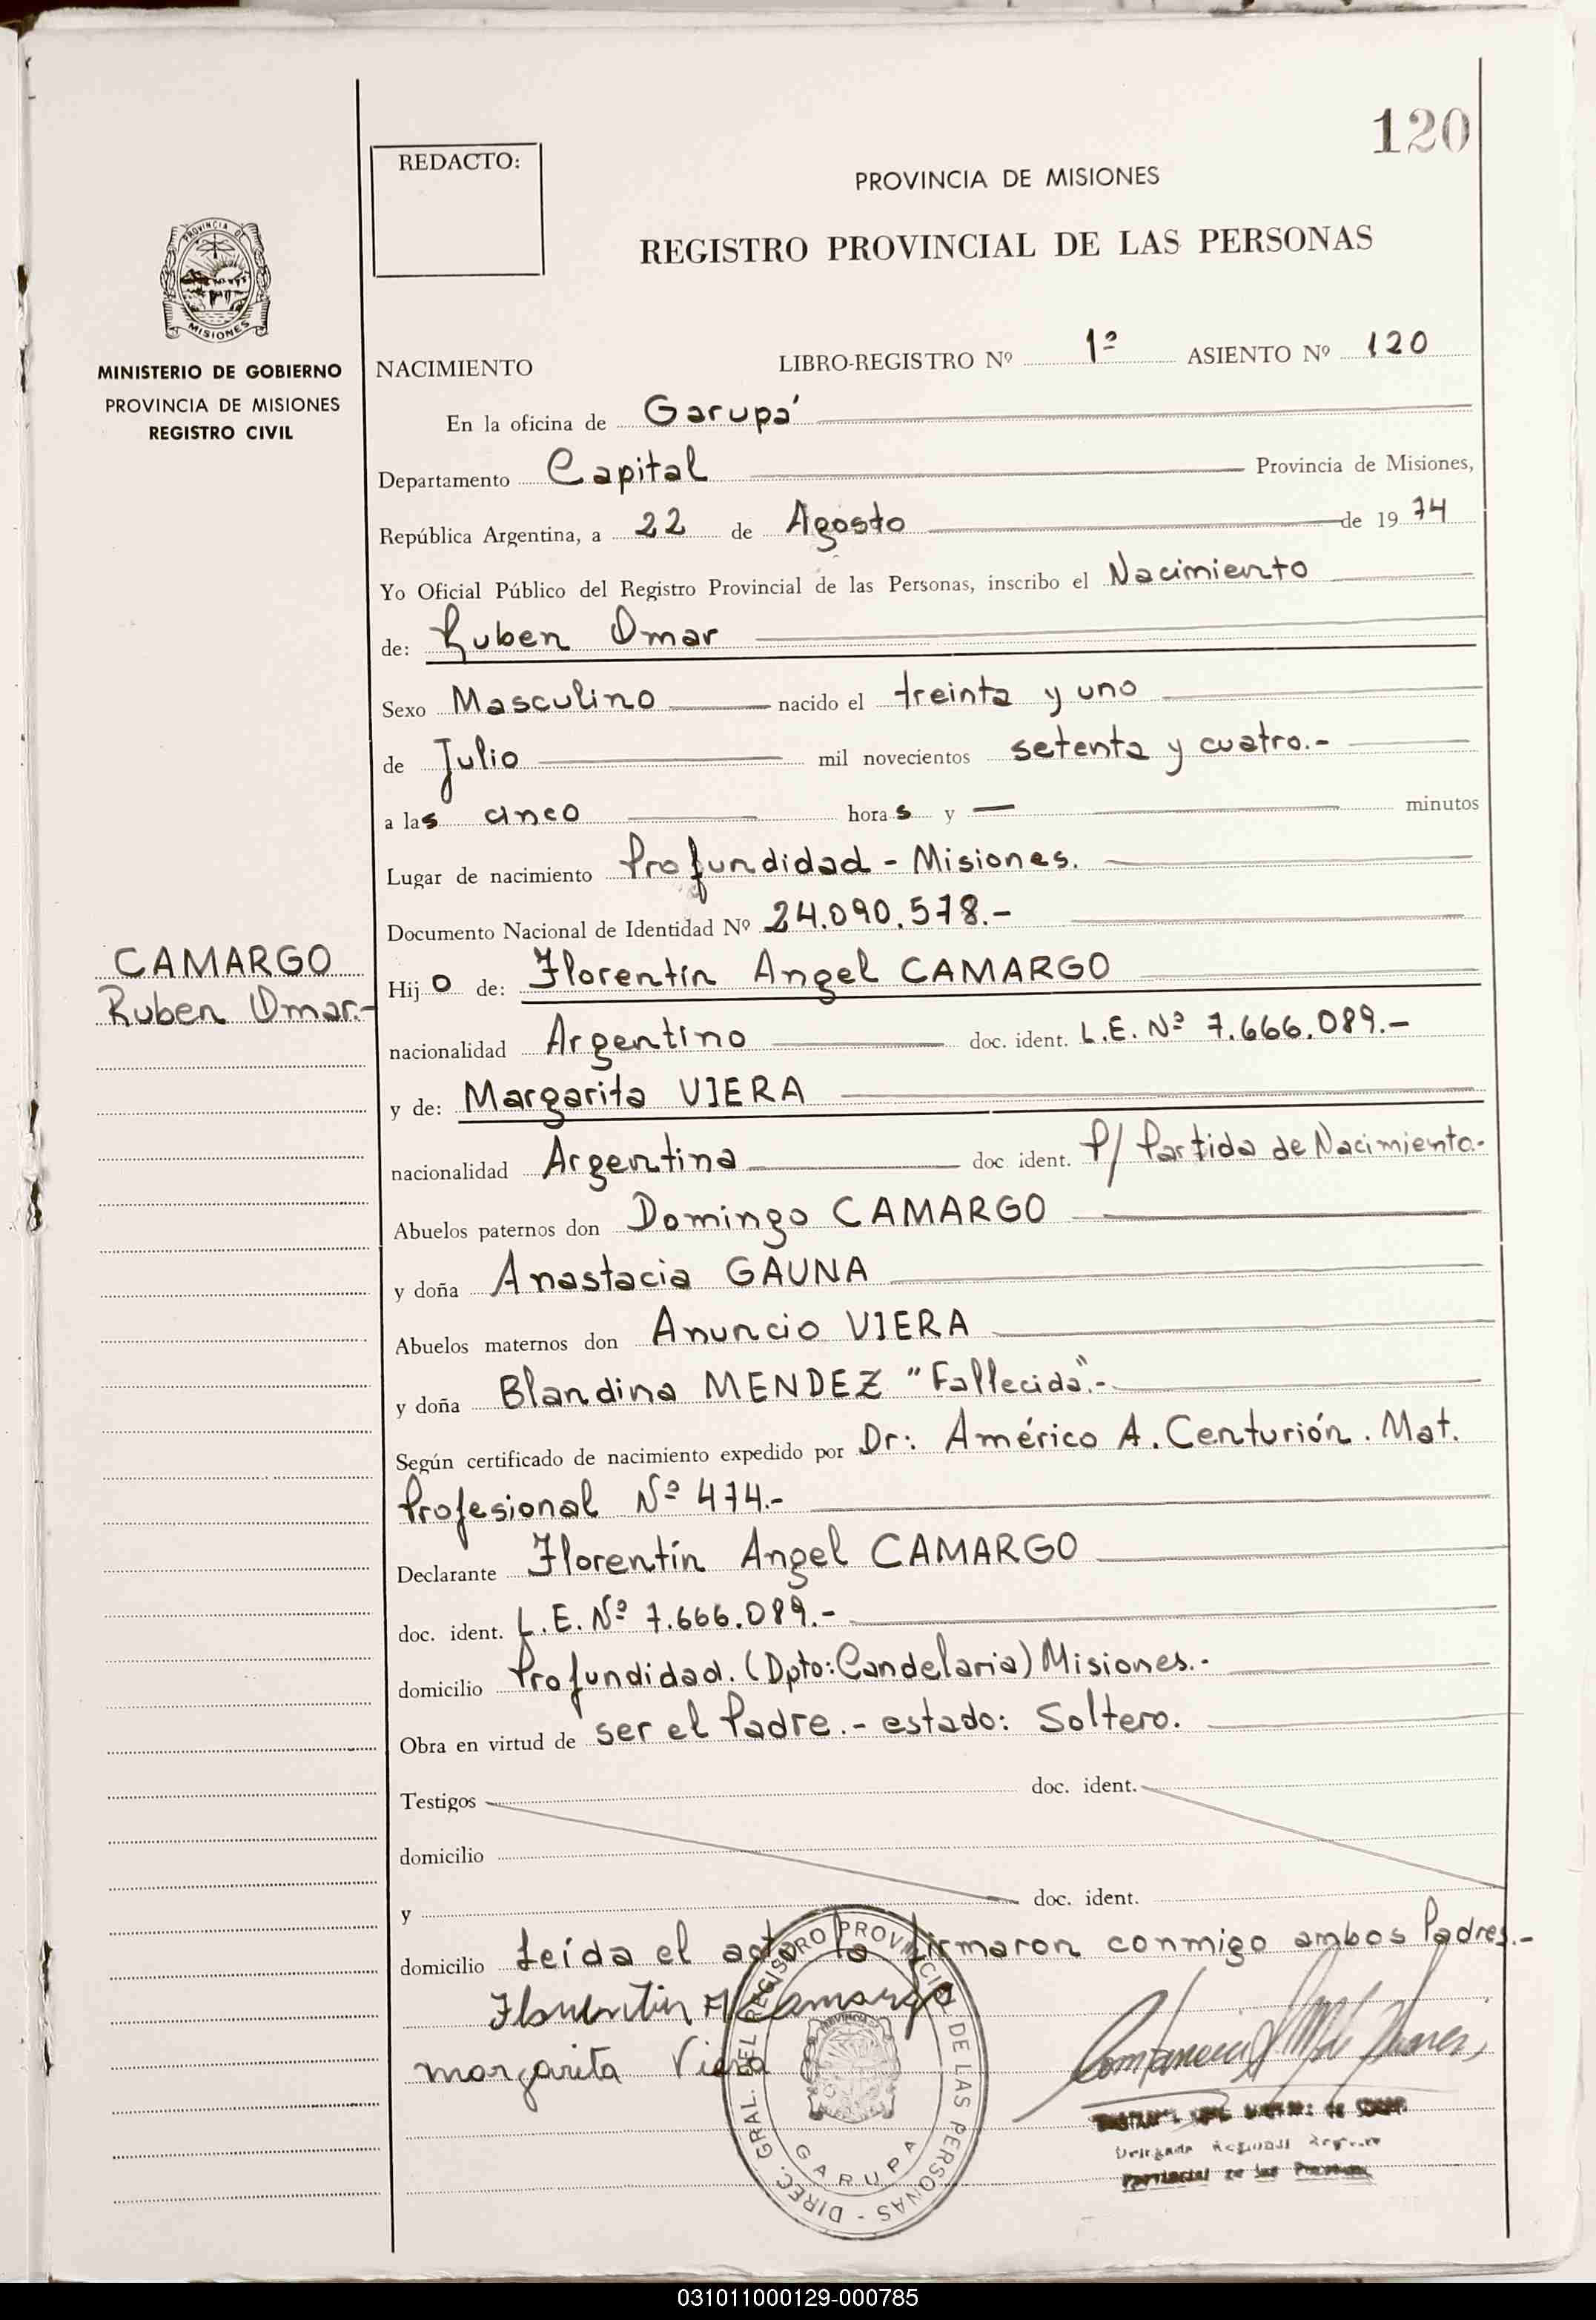 120
REDACTO:
PROVINCIA DE MISIONES
REGISTRO PROVINCIAL DE LAS PERSONAS
PROVINCIA DE
MISIONES
MINISTERIO DE GOBIERNO
PROVINCIA DE MISIONES
REGISTRO CIVIL
NACIMIENTO LIBRO-REGISTRO Nº 1º ASIENTO Nº 120
En la oficina de Garupá
Departamento Capital Provincia de Misiones,
República Argentina, a 22 de Agosto de 1974
Yo Oficial Público del Registro Provincial de las Personas, inscribo el Nacimiento
de: Ruben Omar
Sexo Masculino nacido el treinta y uno
de Julio mil novecientos setenta y cuatro.-
a las cinco horas y — minutos
Lugar de nacimiento Profundidad - Misiones.
Documento Nacional de Identidad Nº 24.090.578.-
CAMARGO
Ruben Omar.-
Hijo de: Florentín Angel CAMARGO
nacionalidad Argentino doc. ident. L.E. Nº 7.666.089.-
y de: Margarita VIERA
nacionalidad Argentina doc. ident. P/ Partida de Nacimiento.-
Abuelos paternos don Domingo CAMARGO
y doña Anastacia GAUNA
Abuelos maternos don Anuncio VIERA
y doña Blandina MENDEZ "Fallecida".-
Según certificado de nacimiento expedido por Dr: Américo A. Centurión. Mat.
Profesional Nº 474.-
Declarante Florentín Angel CAMARGO
doc. ident. L.E. Nº 7.666.089.-
domicilio Profundidad. (Dpto: Candelaria) Misiones.-
Obra en virtud de ser el Padre.- estado: Soltero.
Testigos doc. ident.
domicilio
y doc. ident.
domicilio Leída el acta la firmaron conmigo ambos Padres.-
Florentin A Camargo
margarita Viera
DIREC. GRAL. DEL REGISTRO PROVINCIAL DE LAS PERSONAS -
GARUPA
Provincial de las Personas
031011000129-000785